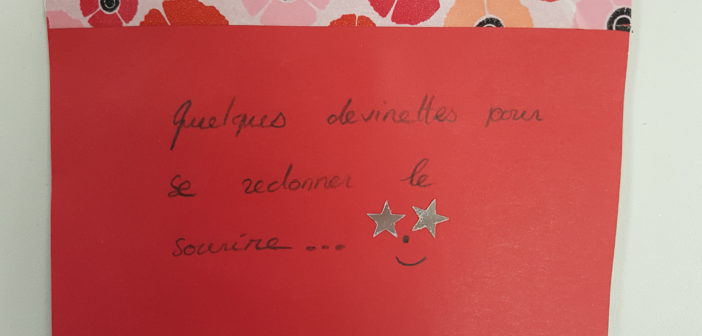 Quelques devinettes pour
se redonner le
sourire...